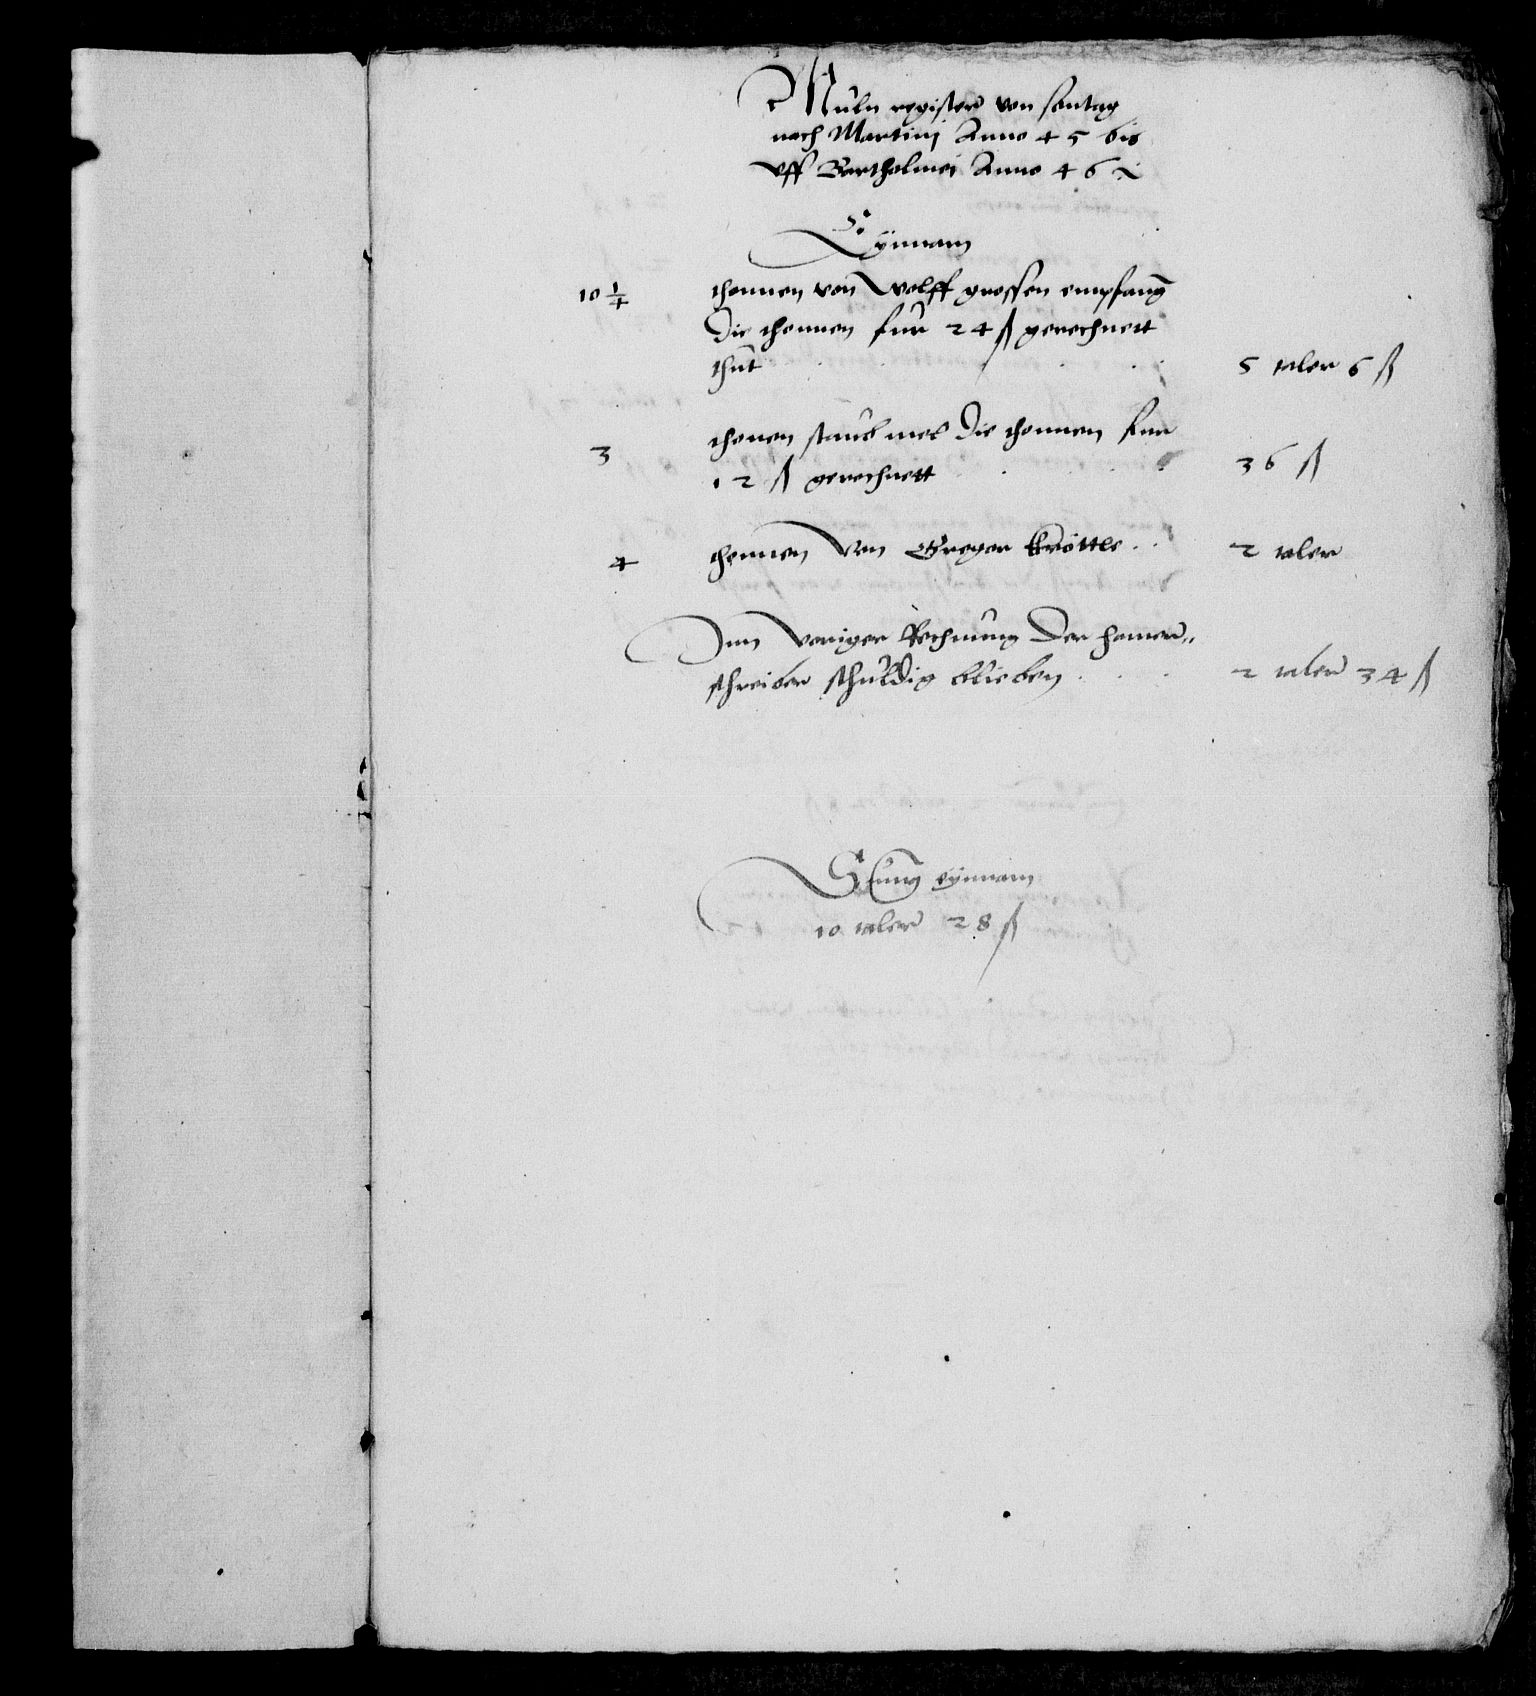 Muln register von sontag
nach Martinj Anno 45 bis
vff Bartholmei Anno 46
Eynnam
10 1/4 thonnen von Wolff grossen empfang
die thonnen fur 24 ß gerechnett
thut . . . . . 5 taler 6 ß
3 thonen staub mel die thonnen fur
12 ß gerechnett . . . . 36 ß
4 thonnen von Gregor Krottle . . 2 taler
Inn voriger Rechnung der hamer„
schreiber schuldig blieben . . . 2 taler 34 ß
Sum eynnam
10 taler 28 ß